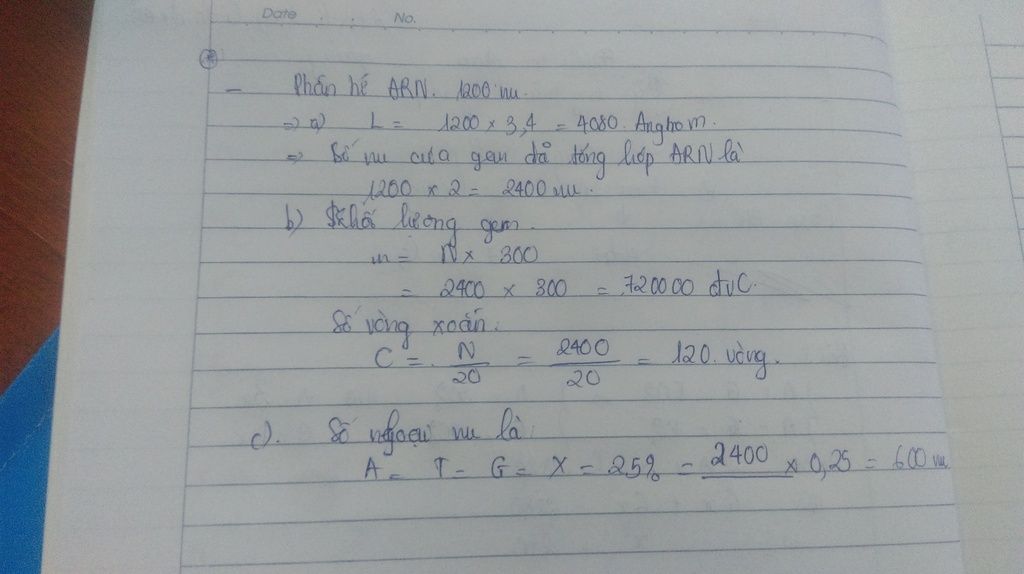 Date . . No.
- Phân hế ARN. 1200 nu.
=> a) L = 1200 x 3,4 = 4080. Anghom.
=> Số nu của gen đã tổng hợp ARN là
1200 x 2 = 2400 nu.
b) Khối lượng gen.
m = N x 300
= 2400 x 300 = 720000 đvC.
Số vòng xoắn:
C = N/20 = 2400/20 = 120. vòng.
c). Số loại nu là:
A = T = G = X = 25% = 2400 x 0,25 = 600 nu